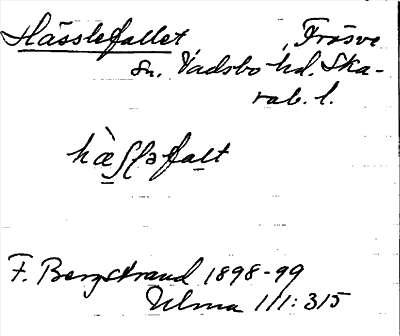 Hässlefallet, Frösve
sn. Vadsbo hd. Ska-
rab. l.
hæ̀ʃʃləfalt
F. Bergstrand 1898-99
Ulma 111:315